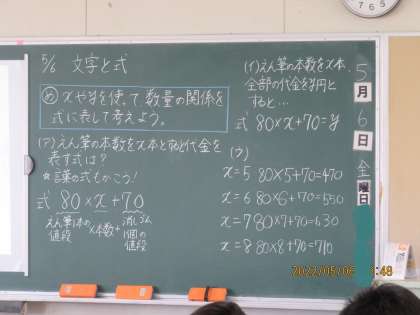 5/6 文字と式
め xやyを使って数量の関係を
式に表して考えよう。
(ア)えん筆の本数をx本とすると代金を
表す式は?
☆言葉の式もかこう!
式 80×x+70
えん筆1本の値段×本数+消しゴム1個の値段
(イ)えん筆の本数をx本、
全部の代金をy円と
すると…
式 80×x+70=y
(ウ)
x=5 80×5+70=470
x=6 80×6+70=550
x=7 80×7+70=630
x=8 80×8+70=710
5
月
6
日
金
曜日